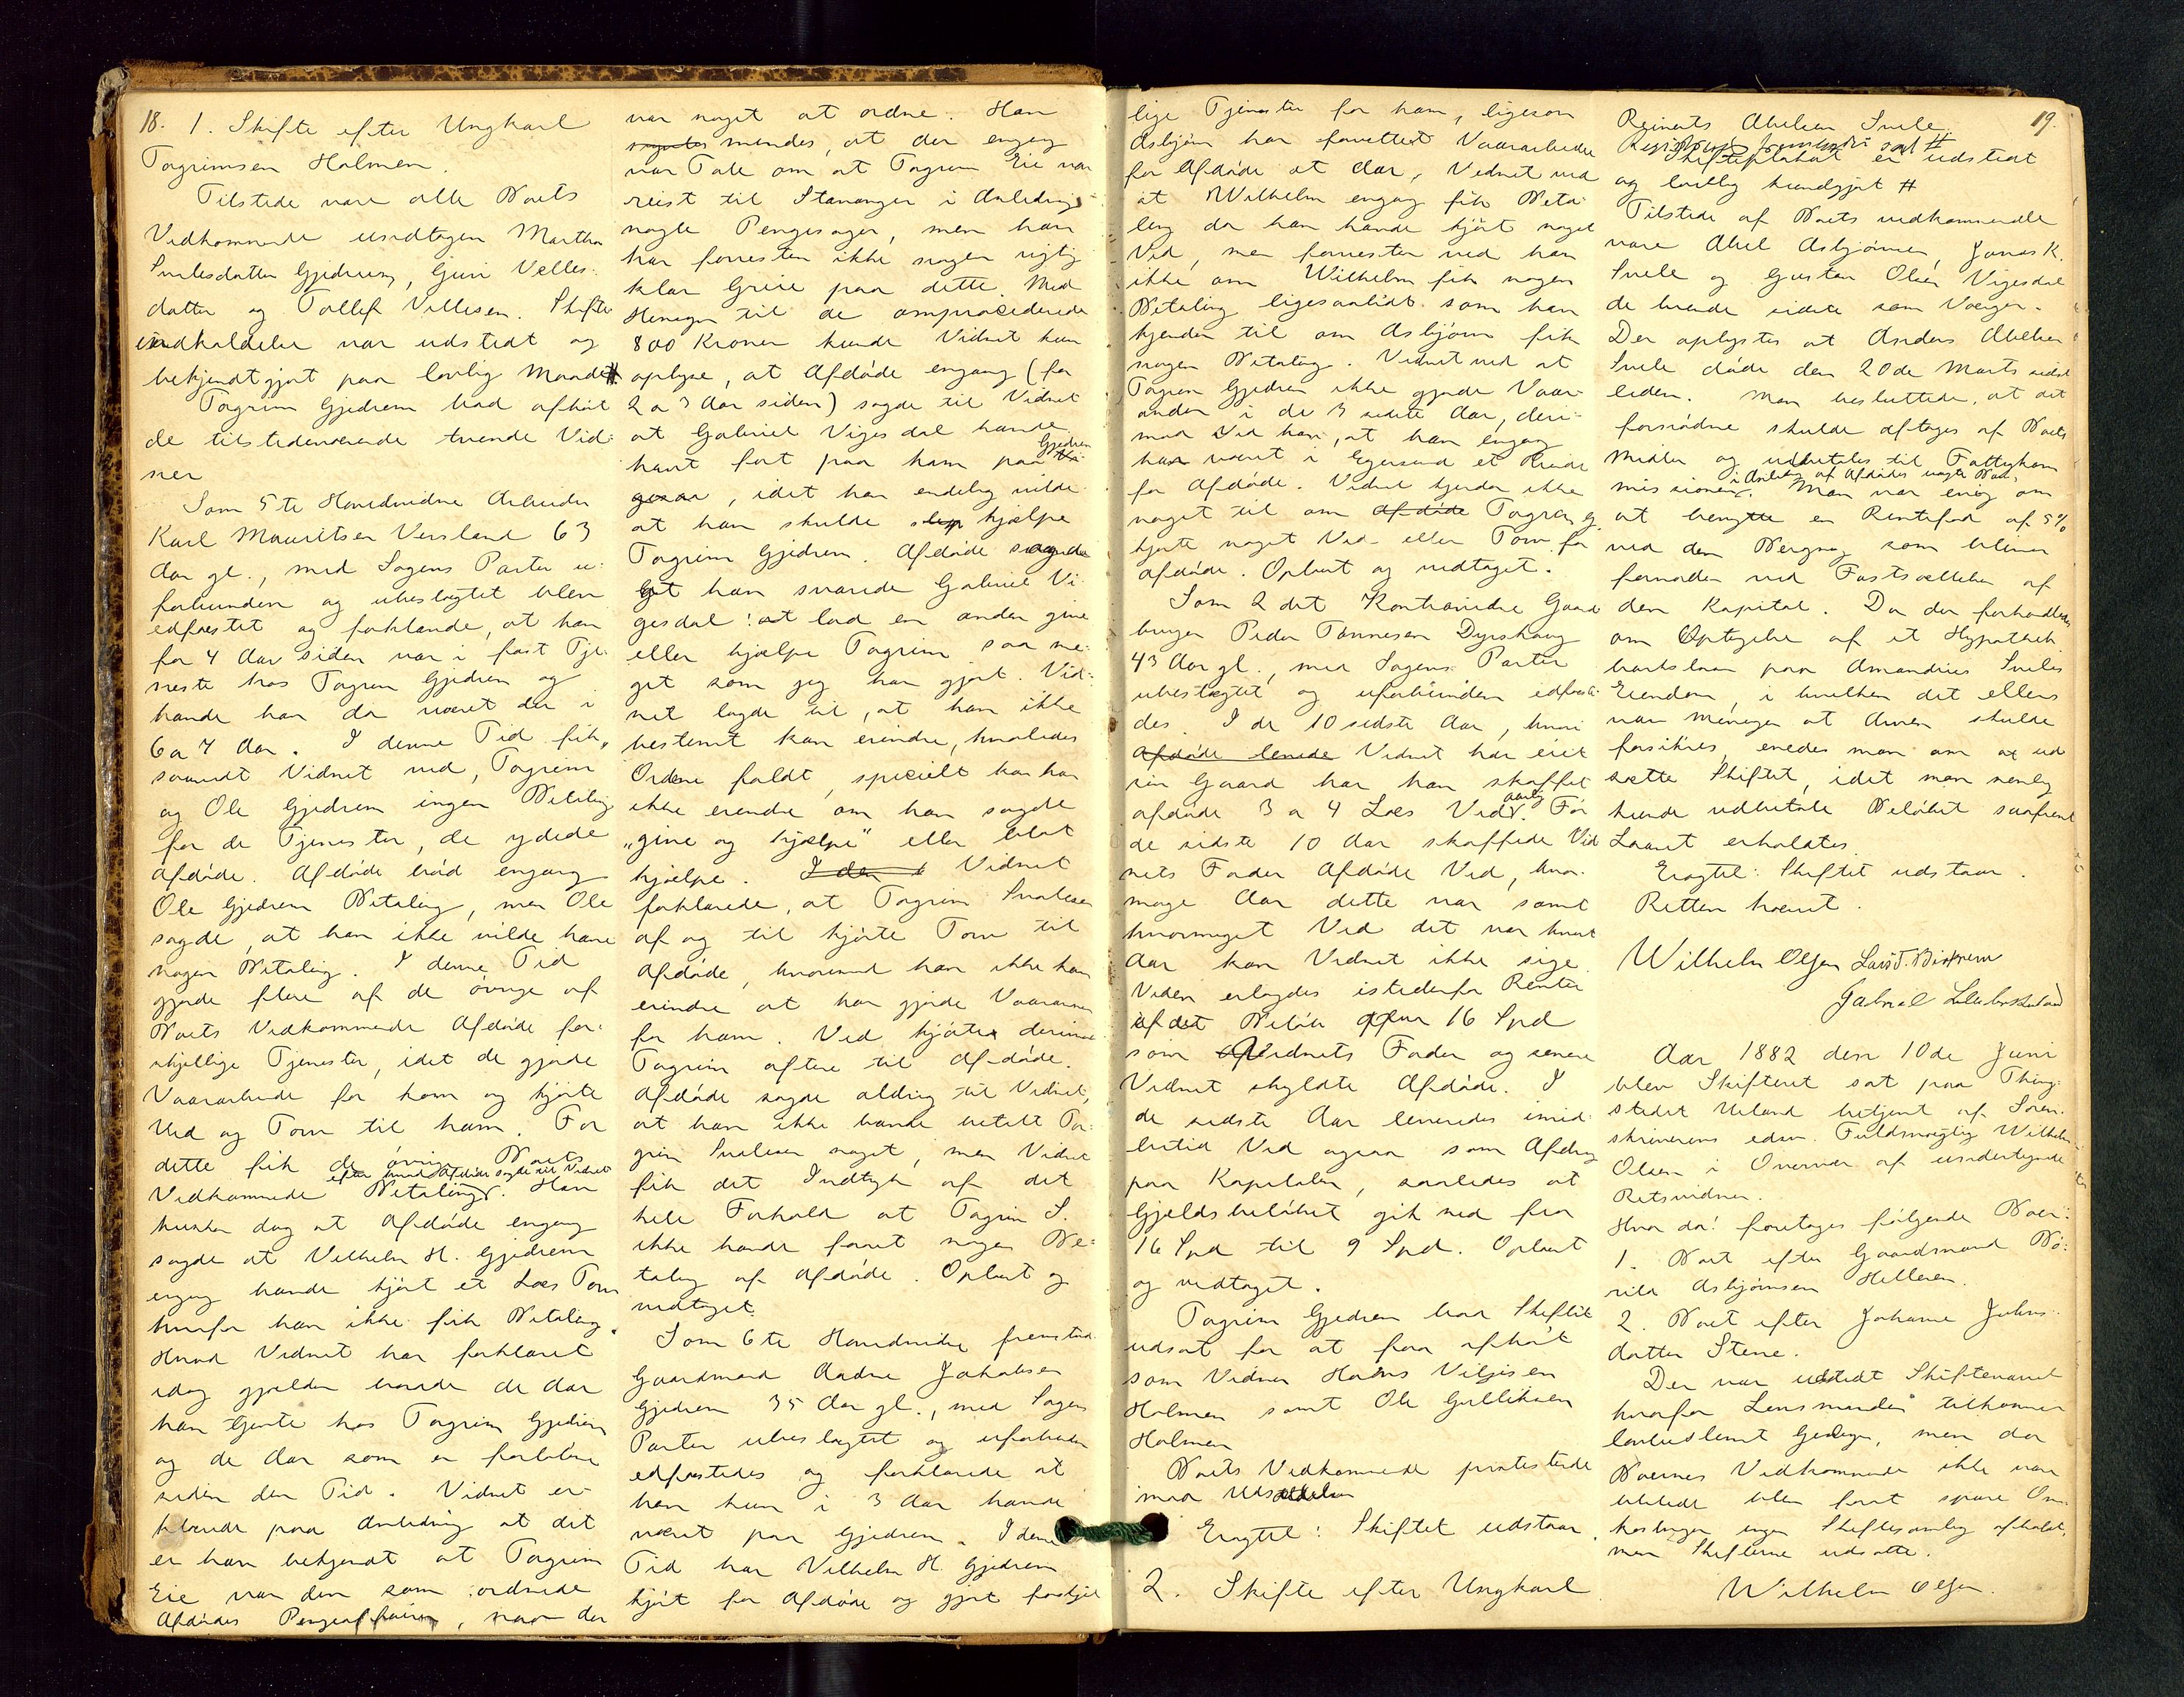 18.
1. Skifte efter Ungkarl
Torgrimsen Holmen.
Tilstede vare alle Boets
Vedkommende undtagen Martha
Svalesdatter Gjedrem, Guri Velles-
datter og Tollef Villesen. Skifte
indkaldelse var udstedt og
bekjendtgjort paa lovlig Maade #
Torgrim Gjedrem bad afhørt
de tilstedeværende tvende Vid-
ner
Som 5te Hovedvidne Arbeider
Karl Mauritsen Versland 63
Aar gl., med Sagens Parter u-
forbunden og ubeslægtet blev
edfæstet og forklarede, at han
for 4 Aar siden var i fast Tje-
neste hos Torgrim Gjedrem og
havde han da været der i
6 a 7 Aar. I denne Tid fik,
saavidt Vidnet ved, Torgrim
og Ole Gjedrem ingen Betaling
for de Tjenester, de ydede
Afdøde. Afdøde bød engang
Ole Gjedrem Betaling, men Ole
sagde, at han ikke vilde have
nogen Betaling. I denne Tid
gjorde flere af de øvrige af
Boets Vedkommende Afdøde for-
skjellige Tjenester, idet de gjorde
Vaararbeide for ham og kjørte
Ved og Torv til ham. For
dette fik de øvrige Boets
efter hvad Afdøde sagde til Vidnet
Vedkommende Betaling. Han
husker dog at Afdøde engang
sagde at Vilhelm H. Gjedrem
engang havde kjørt et Læs Torv
hvorfor han ikke fik Betaling.
Hvad Vidnet har forklaret
idag gjælder baade de Aar
han tjente hos Torgrim Gjedrem
og de Aar som er forløbne
siden den Tid. Vidnet er-
klærede paa Anledning at det
er ham bekjendt at Torgrim
Eie var den som ordnede
Afdødes Pengeaffairer, naar der
var noget at ordne. Han
mendes, at der engang
var Tale om at Torgrim Eie var
reist til Stavanger i Anledning
nogle Pengesager, men han
har forresten ikke nogen rigtig
klar Greie paa dette. Med
Hensyn til de omprocederede
800 Kroner kunde Vidnet kun
oplyse, at Afdøde engang (for
2 a 3 Aar siden) sagde til Vidnet
at Gabriel Vigesdal havde
Gjedrem
havt fort paa ham paa
, idet han endelig vilde
at han skulde hjælpe
Torgrim Gjedrem. Afdøde sagde
at han svarede Gabriel Vi-
gesdal: at lad en anden give
eller hjælpe Torgrim saa me-
get som jeg har gjort. Vid-
net lagde til, at han ikke
bestemt kan erindre, hvorledes
Ordene faldt, specielt kan han
ikke erindre om han sagde
"give og hjælpe" eller blot
hjælpe. I den Vidnet
forklarede, at Torgrim Svalesen
af og til kjørte Torv til
Afdøde, hvorimod han ikke kan
erindre at han gjorde Vaaronn
for ham. Ved kjørte derimod
Torgrim oftere til Afdøde.
Afdøde sagde aldrig til Vidnet,
at han ikke havde betalt Tor-
grim Svalesen noget, men Vidnet
fik det Indtryk af det
hele Forhold at Torgrim S.
ikke havde faaet nogen Be-
taling af Afdøde. Oplæst og
vedtaget.
Som 6te Hovedvidne fremstod
Gaardmand Aadne Jakobsen
Gjedrem 35 Aar gl., med Sagens
Parter ubeslægtet og uforbunden
edfæstedes og forklarede at
han kun i 3 Aar havde
været paa Gjedrem. I denne
Tid har Vilhelm H. Gjedrem
kjørt for Afdøde og gjort forskjel
lige Tjenester for ham, ligesom
Asbjørn har forrettet Vaararbeide
for Afdøde et Aar, Vidnet ved
at Wilhelm engang fik Beta-
ling da han havde kjørt noget
Ved, men forresten ved han
ikke om Wilhelm fik nogen
Betaling ligesaalidt som han
kjender til om Asbjørn fik
nogen Betaling. Vidnet ved at
Torgrim Gjedrem ikke gjorde Vaar-
onden i de 3 sidste Aar, deri-
mod ved han, at han engang
har været i Egersund et Ærinde
for Afdøde. Vidnet kjender ikke
noget til om Afdøde Torgrim G.
kjørte noget Ved eller Torv for
Afdøde. Oplæst og vedtaget.
Som 2det Kontravidne Gaard
bruger Peder Tønnesen Dyrskoug
43 Aar gl., med Sagens Parter
ubeslægtet og uforbunden edfæste-
des. I de 10 sidste Aar, hvori
Afdøde levede Vidnet har eiet
sin Gaard har han skaffet
aarlig
Afdøde 3 a 4 Læs Ved. For
de sidste 10 Aar skaffede Vid
nets Fader Afdøde Ved, hvor-
mage Aar dette var samt
hvormeget Ved det var hvert
Aar kan Vidnet ikke sige.
Veden erlagdes istedenfor Renter
af det Beløb 16 Spd
som Vidnets Fader og senere
Vidnet skyldte Afdøde. I
de sidste Aar leveredes imid-
lertid Ved ogsaa som Afdrag
paa Kapitalen, saaledes at
Gjeldsbeløbet gik ned fra
16 Spd til 9 Spd. Oplæst
og vedtaget.
Torgrim Gjedrem bad Skiftet
udsat for at faa afhørt
som Vidner Hans Viljesen
Holmen samt Ole Gulliksen
Holmen
Boets Vedkommende protesterede
mod Udsættelsen
Eragtet: Skiftet udstaar.
2. Skifte efter Ungkarl
19.
Reinerts Abelsen Svele
Skifteplakat er udstedt
og lovlig kundgjort #
Tilstede af Boets vedkommende
vare Abel Asbjørnsen, Jonas K.
Svele og Gustav Olsen Vigesdal
de tvende sidste som Værger.
Der oplystes at Anders Abelsen
Svele døde den 20de Marts sidst
leden. Man besluttede, at det
fornødne skulde aftages af Boets
Midler og udbetales til Fattigkom
missionen. Man var enig om
at benytte en Rentefod af 5%
ved den Beregning som bliver
fornøden ved Fastsættelsen af
den Kapital. Da der forhandles
om Optagelse af et Hypothek
banklaan paa Amandus Sveles
Eiendom, i hvilken det ellers
var Meningen at Arven skulde
forsikres, enedes man om at ud
sætte Skiftet, idet man nemlig
kunde udbetale Beløbet saafremt
Laanet erholdtes.
Eragtet: Skiftet udstaar.
Retten hævet.
Wilhelm Olsen Lars T. Bistrem
Gabriel
Aar 1882 den 10de Juni
blev Skifteret sat paa Thing-
stedet Ueland betjent af Soren-
skriverens edsv. Fuldmægtig Wilhelm
Olsen i Overvær af undertegnede
Retsvidner.
Hvor da! foretoges følgende Boer:
1. Boet efter Gaardmand Bø-
rild Asbjørnsen Helleren.
2. Boet efter Johanne Johns-
datter Stene.
Der var udstedt Skiftevarsel
hvorfor Lensmanden tilkommer
lovbestemt Godtgj., men da
Boernes Vedkommende ikke var
tilstede blev for at spare Om-
kostninger ingen Skiftesamling afholdt,
men Skifterne udsatte.
Wilhelm Olsen.